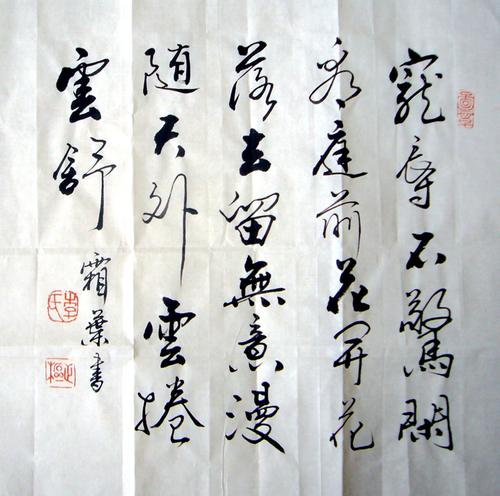 寵辱不驚閑
看庭前花開花
落去留無意漫
随天外雲捲
雲舒
霜葉書
李氏